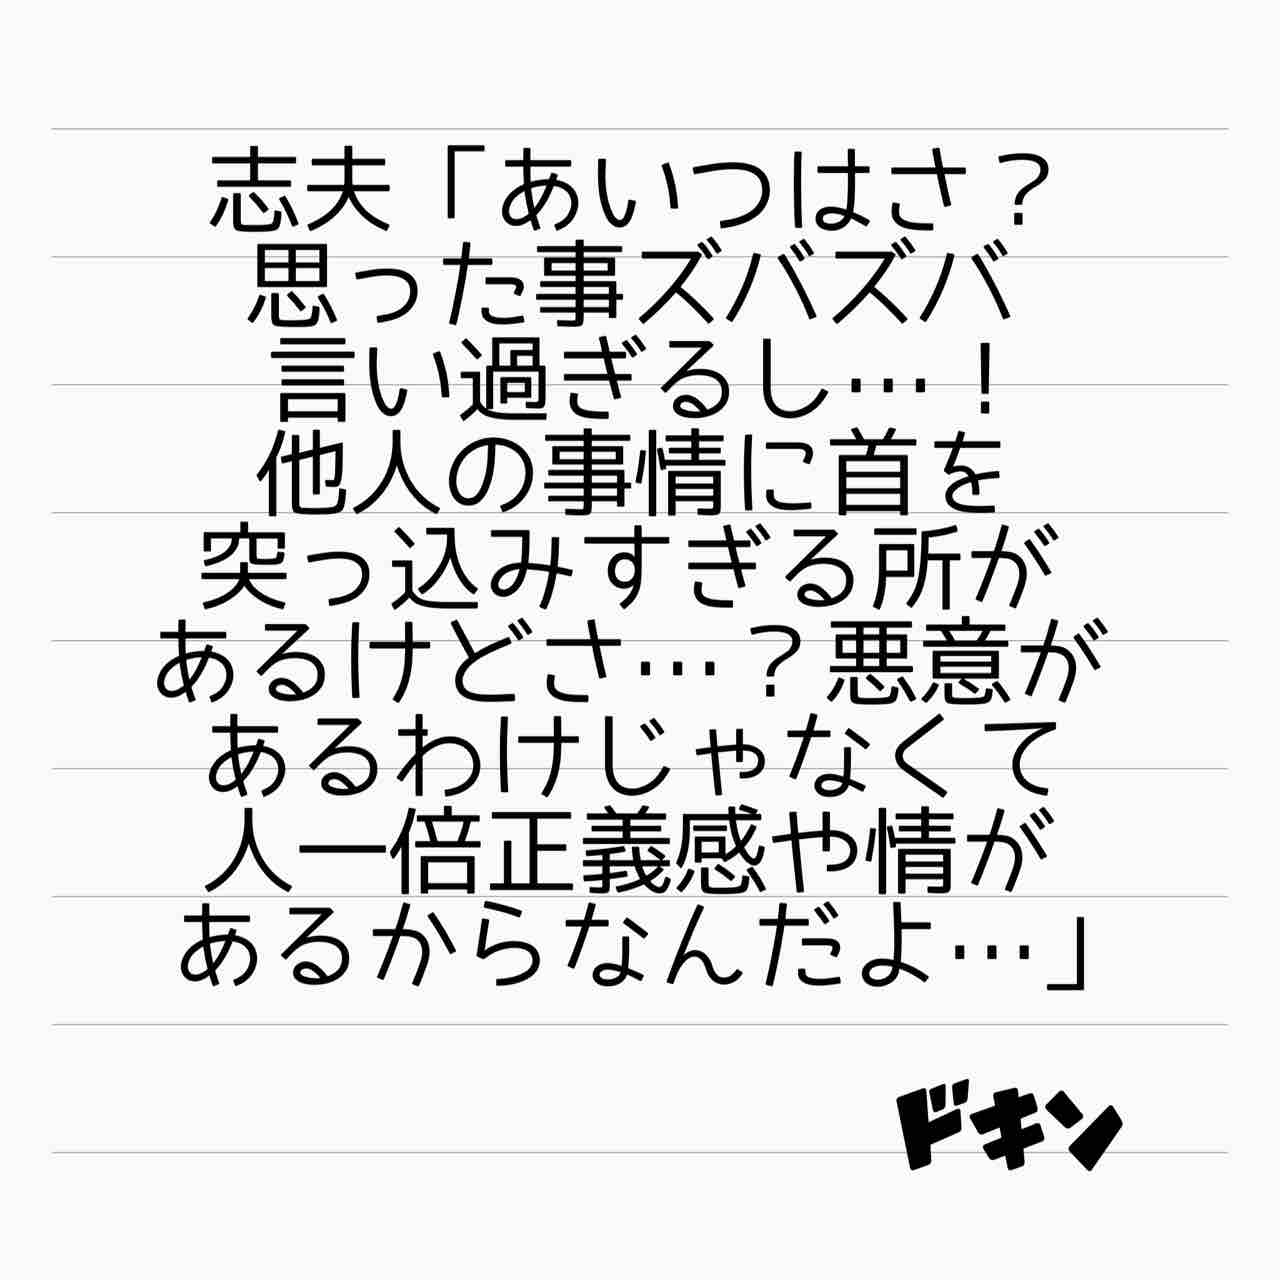 志夫「あいつはさ？
思った事ズバズバ
言い過ぎるし…！
他人の事情に首を
突っ込みすぎる所が
あるけどさ…？悪意が
あるわけじゃなくて
人一倍正義感や情が
あるからなんだよ…」
ドキン